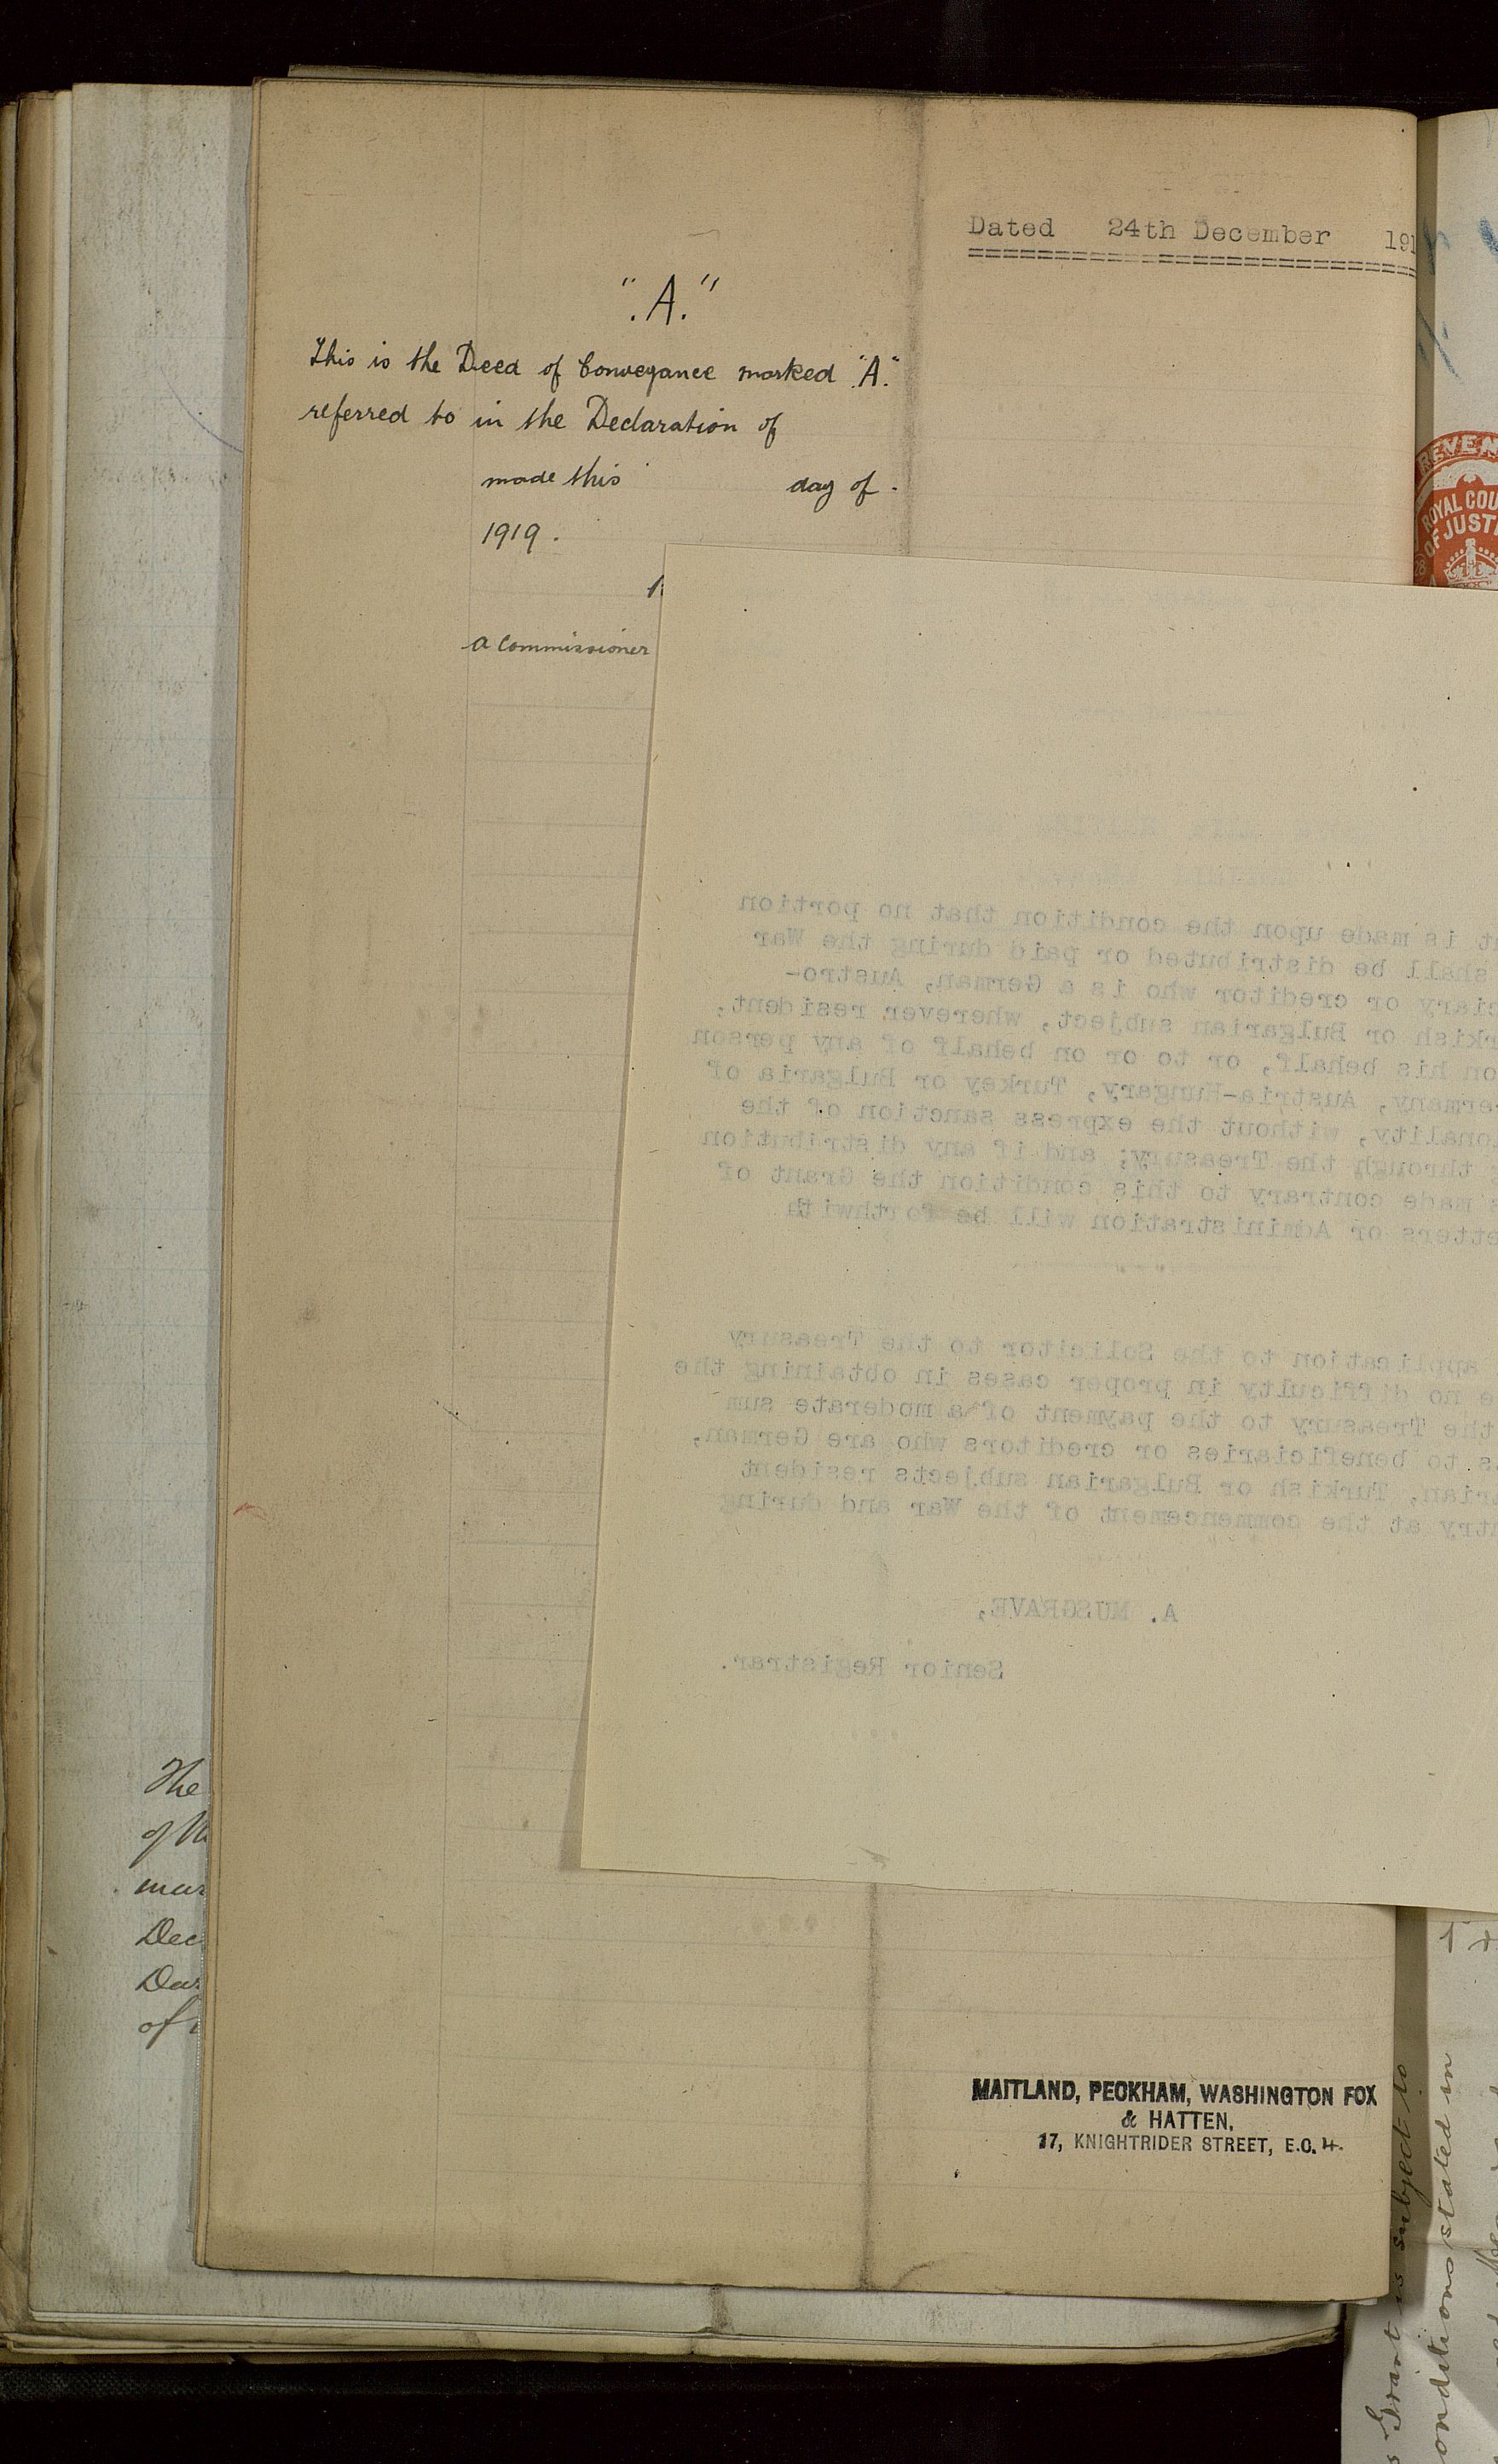 Dated 24th December 191
"A."
This is the Deed of Conveyance marked "A."
referred to in the Declaration of
made this day of
1919.
a Commissioner
REVEN
ROYAL COU
OF JUST
is made upon the condition that no portion
shall be distributed or paid during the War
ciary or creditor who is a German, Austro-
rkish or Bulgarian subject, wherever resident,
on his behalf, or to or on behalf of any person
ermany, Austria-Hungary, Turkey or Bulgaria of
ionality, without the express sanction of the
through the Treasury; and if any distribution
made contrary to this condition the Grant of
etters or Administration will be forthwith
application to the Solicitor to the Treasury
e no difficulty in proper cases in obtaining the
the Treasury to the payment of a moderate sum
s to beneficiaries or creditors who are German,
arian, Turkish or Bulgarian subjects resident
ntry at the commencement of the War and during
A. MUSGRAVE,
Senior Registrar.
The
of
mar
Dec
Dar
of
MAITLAND, PECKHAM, WASHINGTON FOX
& HATTEN,
17, KNIGHTRIDER STREET, E.C.4.
Grant is subject to
onditions stated in